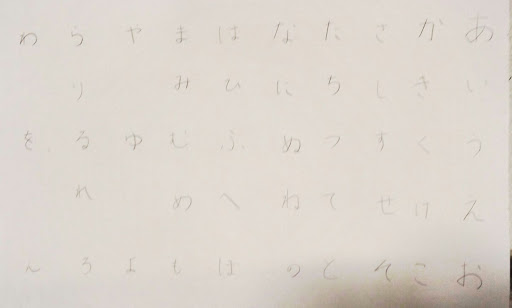 あいうえお
かきくけこ
さしすせそ
たちつてと
なにぬねの
はひふへは
まみむめも
やゆよ
らりるれろ
わをん